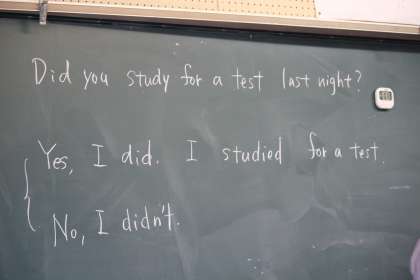 Did you study for a test last night?
Yes, I did. I studied for a test.
No, I didn't.